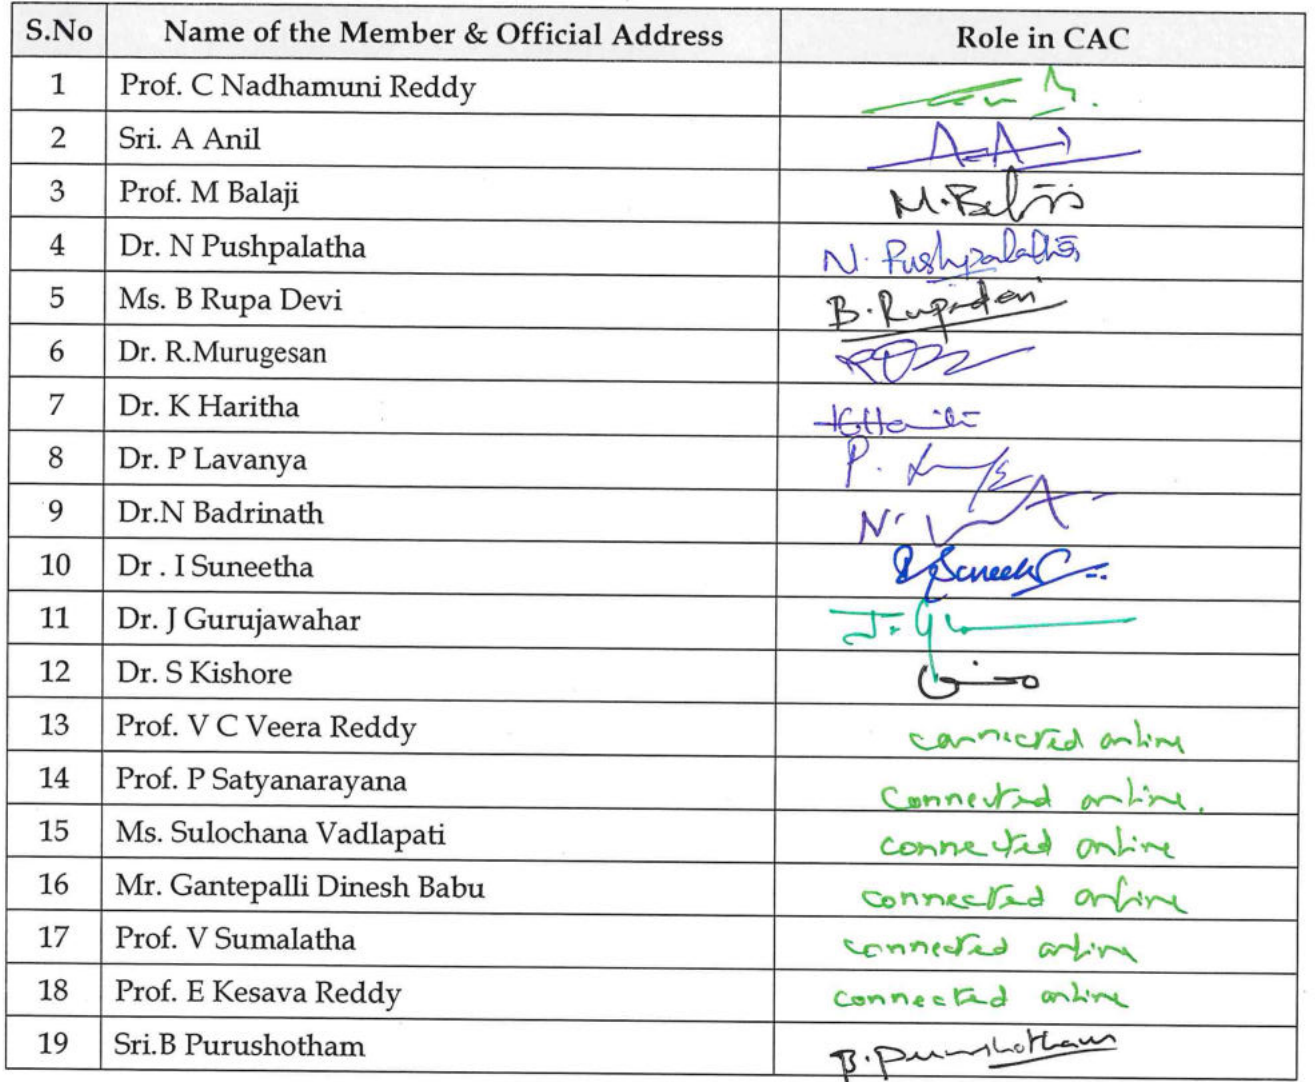 S.No Name of the Member & Official Address Role in CAC
1 Prof. C Nadhamuni Reddy
2 Sri. A Anil
3 Prof. M Balaji M. Balaji
4 Dr. N Pushpalatha N. Pushpalatha
5 Ms. B Rupa Devi B. Rupadevi
6 Dr. R.Murugesan
7 Dr. K Haritha
8 Dr. P Lavanya P.
9 Dr.N Badrinath N.
10 Dr . I Suneetha
11 Dr. J Gurujawahar
12 Dr. S Kishore
13 Prof. V C Veera Reddy connected online
14 Prof. P Satyanarayana Connected online.
15 Ms. Sulochana Vadlapati connected online
16 Mr. Gantepalli Dinesh Babu connected online
17 Prof. V Sumalatha connected online
18 Prof. E Kesava Reddy connected online
19 Sri.B Purushotham B. Purushotham